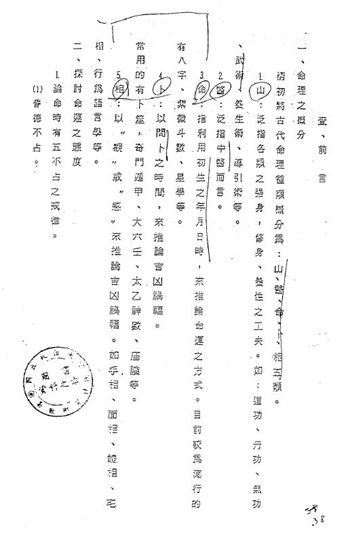 壹、前言
一、命理之概分
清初將古代命理種類概分為:山、醫、命、卜、相五類。
1.山:泛指各類之強身,修身、養性之工夫。如:道功、丹功、氣功
、武術、養生術、導引術等。
2.醫:泛指中醫而言。
3.命:指利用初生之年月日時,來推論命運之方式。目前較為流行的
有八字、紫微斗數、星學等。
4.卜:以問卜之時間,來推論吉凶禍福。
常用的有卜筮,奇門遁甲、大六壬、太乙神數、廟籤等。
5.相:以"視"或"感"來推論吉凶禍福。如手相、面相、體相、宅
相、行為語言學等。
二、探討命運之態度
1.論命時有五不占之戒律。
(1)昏德不占。
38
38